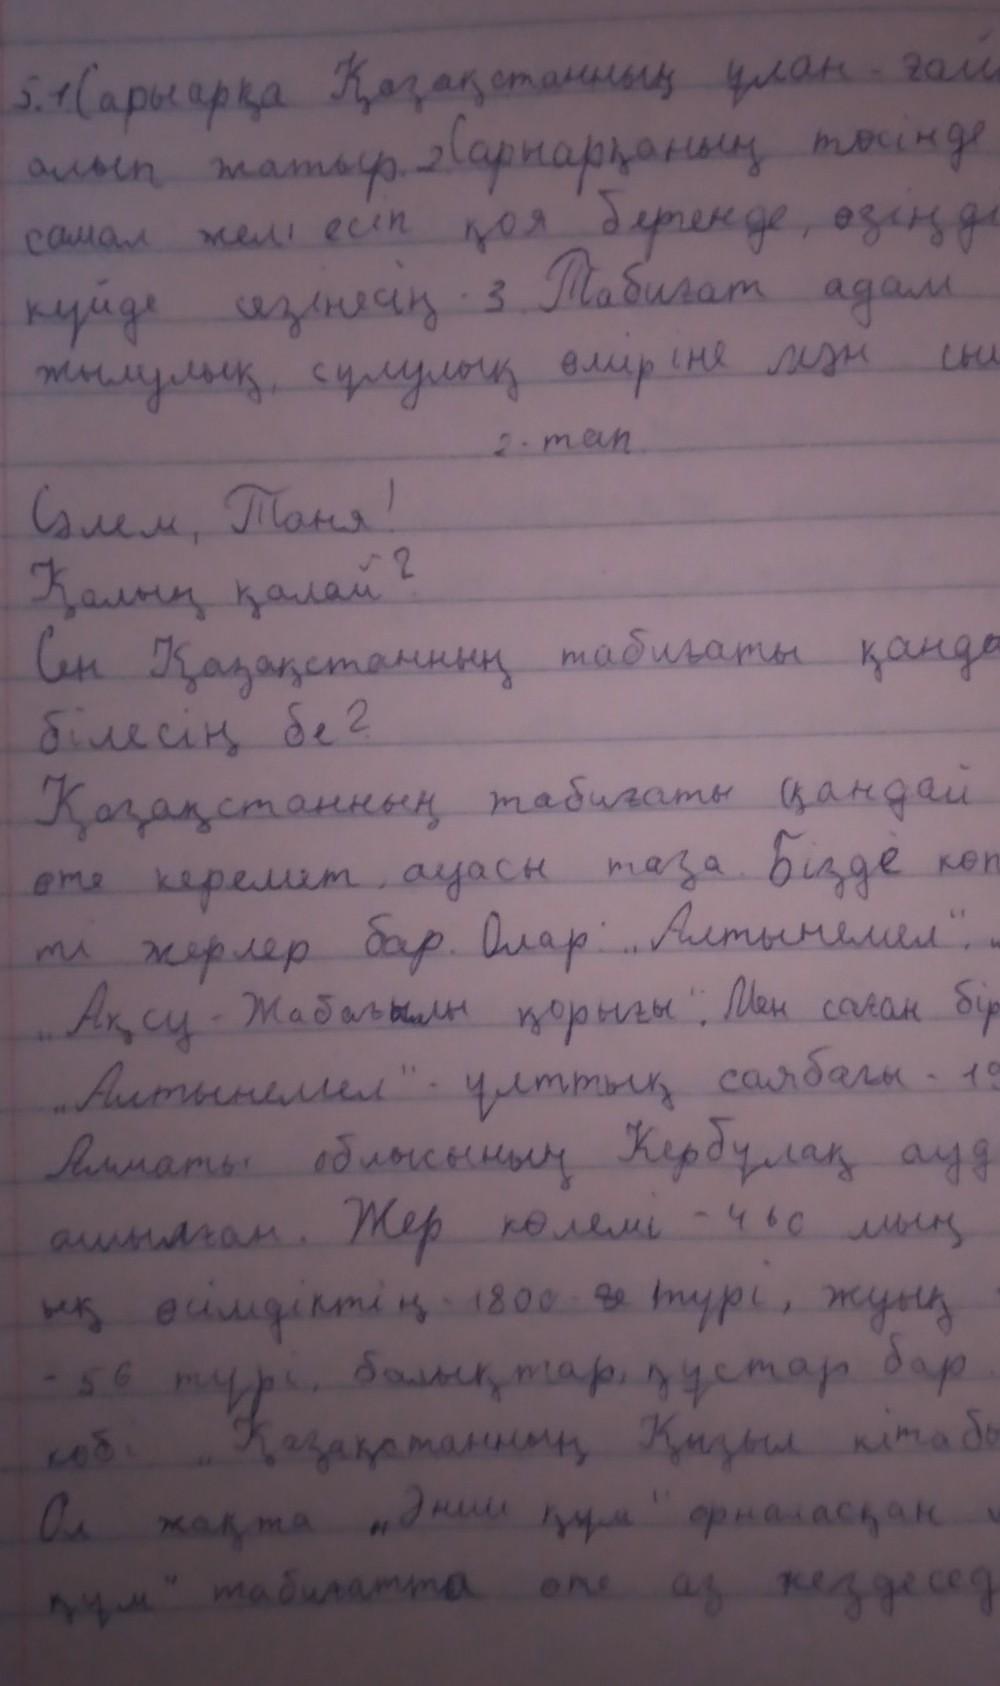 5.1 Сарыарқа Қазақстанның ұлан-ғай
алып жатыр. 2 Сарыарқаның төсінде
самал желі есіп қоя бергенде, өзіңді
күйде сезінесің. 3. Табиғат адам
жылулық, сұлулық өміріне мән сый
2-тап
Сәлем, Таня!
Қалың қалай?
Сен Қазақстанның табиғаты қанда
білесің бе?
Қазақстанның табиғаты қандай
өте керемет, ауасы таза. Бізде көп
ті жерлер бар. Олар: „Алтынемел“.
„Ақсу-Жабағылы қорығы“. Мен саған бір
„Алтынемел“ - ұлттық саябағы - 19
Алматы облысының Кербұлақ ауд
ашылған. Жер көлемі - 460 мың
ық өсімдіктің - 1800 түрі, жуық
- 56 түрі, балықтар, құстар бар.
көбі „Қазақстанның Қызыл кітабы
Ол жақта „Әнші құм“ орналасқан
құм“ табиғатта өте аз кездесед